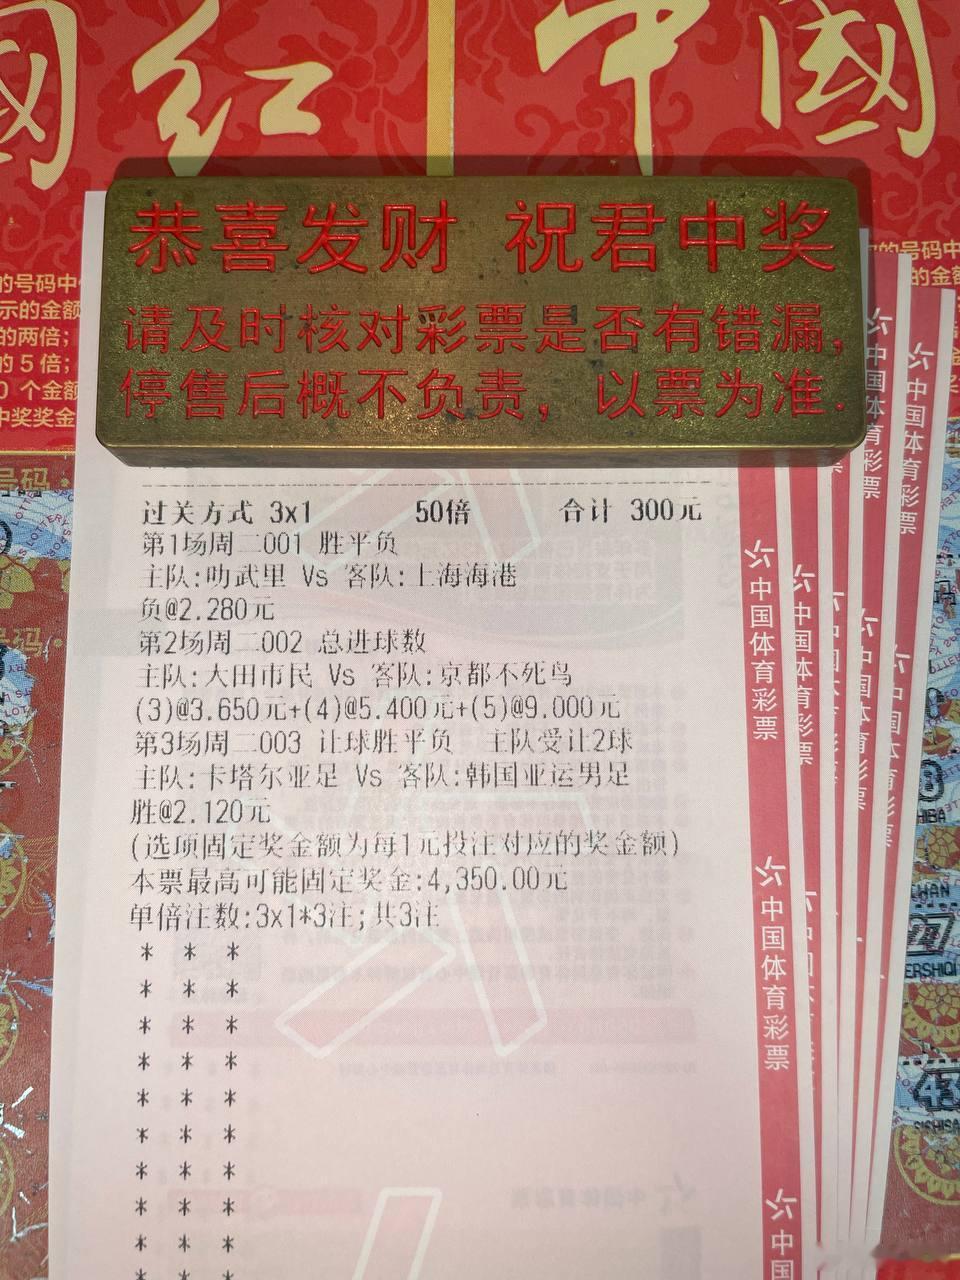 國红 中國
的号码中
示的金额
的两倍；
的5倍；
0个金额
中奖奖金
号码·
恭喜发财 祝君中奖
请及时核对彩票是否有错漏，
停售后概不负责，以票为准.
过关方式 3x1 50倍 合计 300元
第1场周二001 胜平负
主队:叻武里 Vs 客队:上海海港
负@2.280元
第2场周二002 总进球数
主队:大田市民 Vs 客队:京都不死鸟
(3)@3.650元+(4)@5.400元+(5)@9.000元
第3场周二003 让球胜平负 主队受让2球
主队:卡塔尔亚足 Vs 客队:韩国亚运男足
胜@2.120元
(选项固定奖金额为每1元投注对应的奖金额)
本票最高可能固定奖金:4,350.00元
单倍注数:3x1*3注;共3注
* * *
* * *
* * *
* * *
* * *
* * *
* * *
* * *
* * *
* * *
中国体育彩票
中国体育彩票
中国
中国体育彩票
中国体育彩票